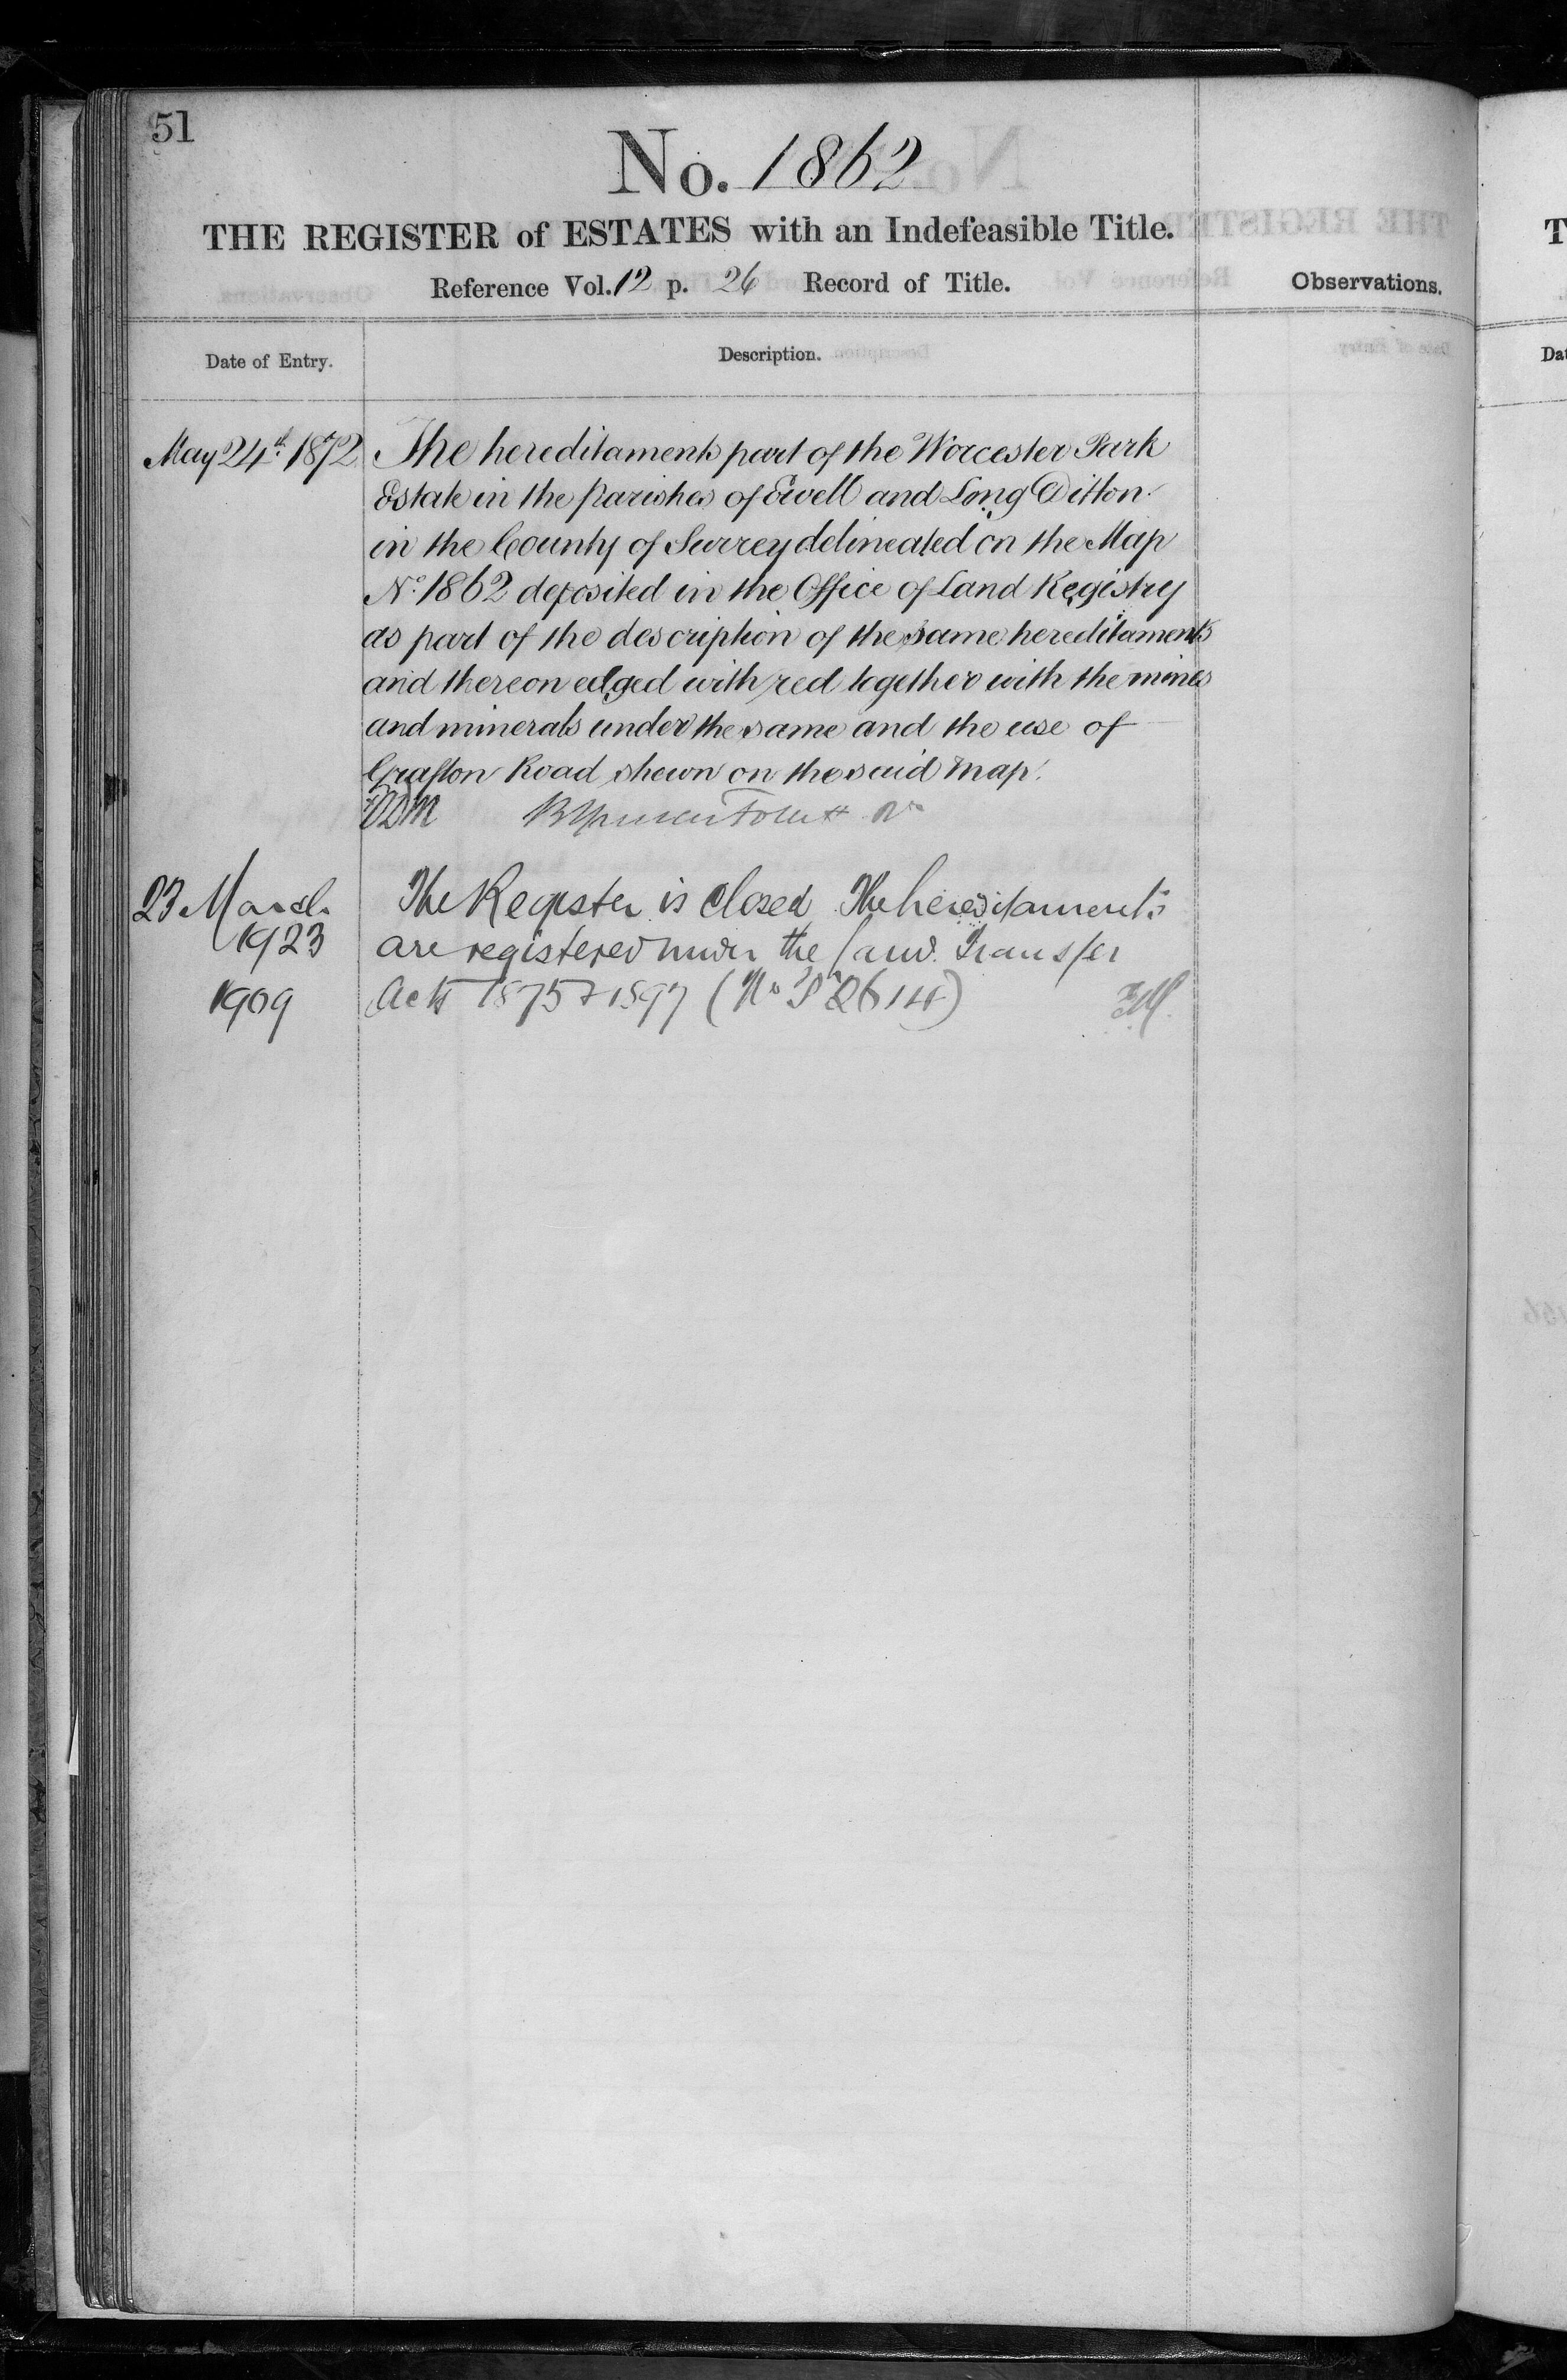 51
No. 1862
THE REGISTER of ESTATES with an Indefeasible Title.
Reference Vol. 12 p. 26 Record of Title.
Observations.
Date of Entry.
Description.
May 24th 1872
The hereditaments part of the Worcester Park
Estate in the parishes of Ewell and Long Ditton
in the County of Surrey delineated on the Map
No. 1862 deposited in the Office of Land Registry
as part of the description of the same hereditaments
and thereon edged with red together with the mines
and minerals under the same and the use of
Grafton Road shewn on the said map.
23 March
1923
1909
The Register is closed The hereditaments
are registered under the Land Transfer
Acts 1875 & 1897 (No